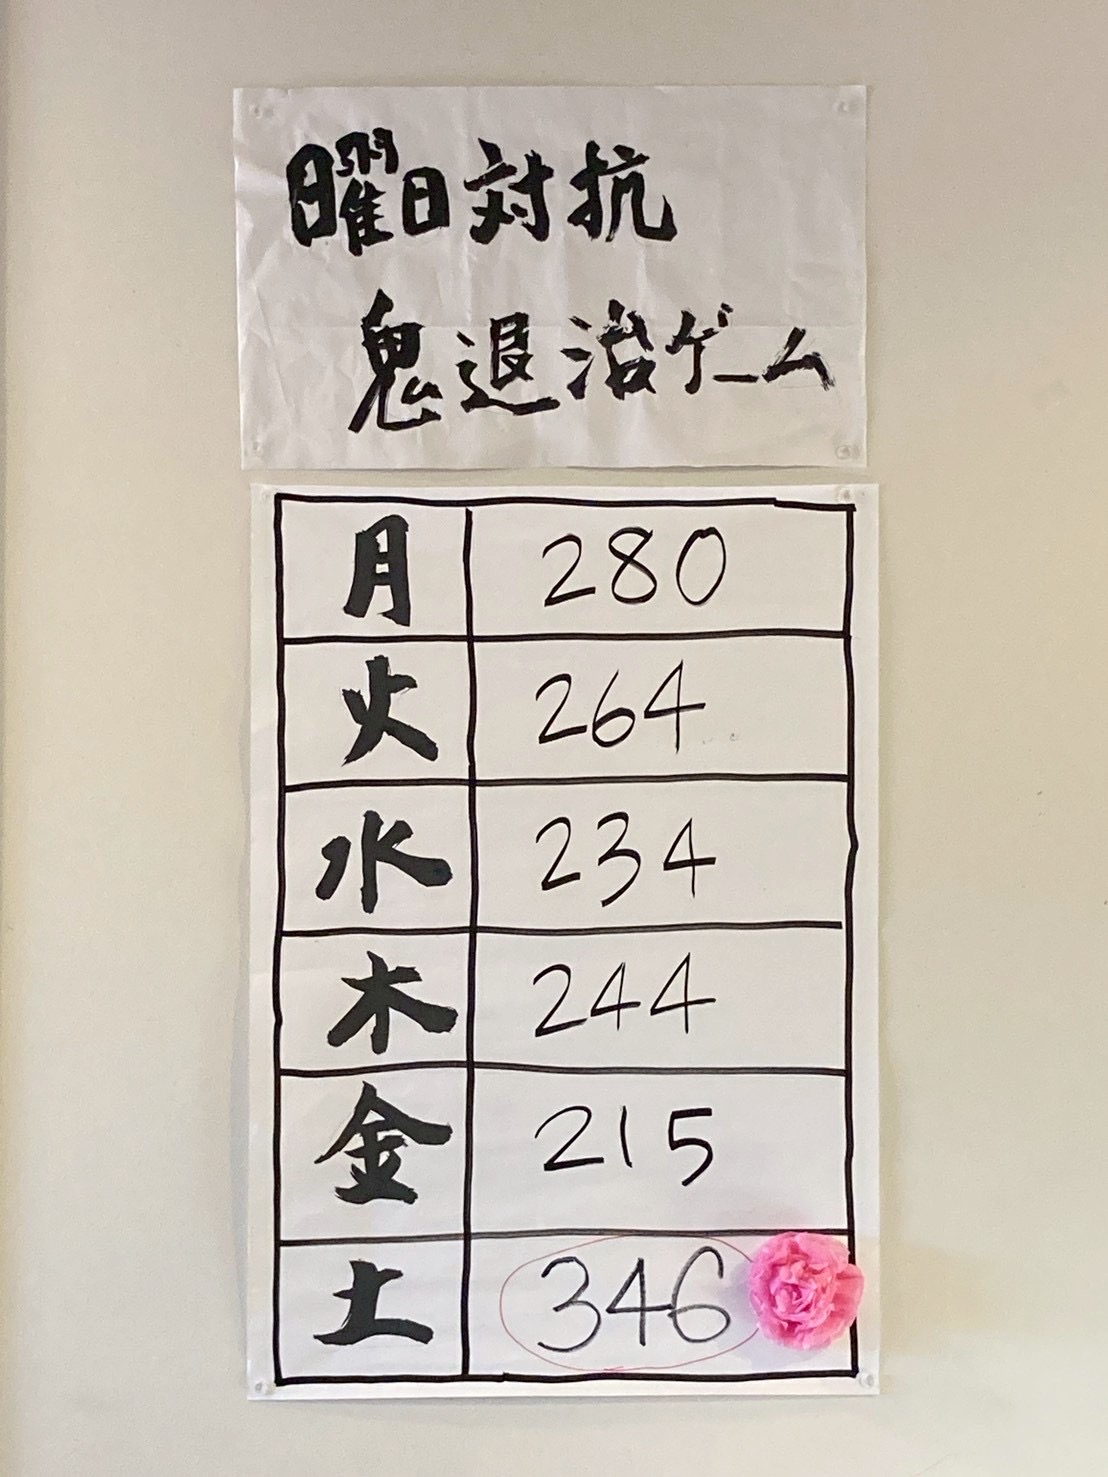 曜日対抗
鬼退治ゲーム
月 280
火 264
水 234
木 244
金 215
土 346